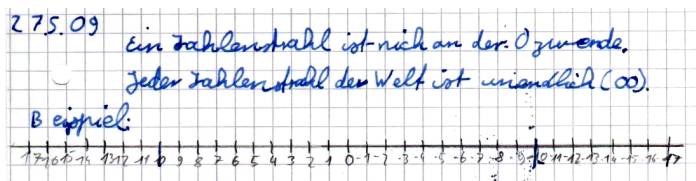 27.5.09
Ein Zahlenstrahl ist nich an der 0 zu ende.
Jeder Zahlenstrahl der Welt ist unendlich (∞).
Beispiel:
17 16 15 14 13 12 11 10 9 8 7 6 5 4 3 2 1 0 -1 -2 -3 -4 -5 -6 -7 -8 -9 -10 -11 -12 -13 -14 -15 -16 -17